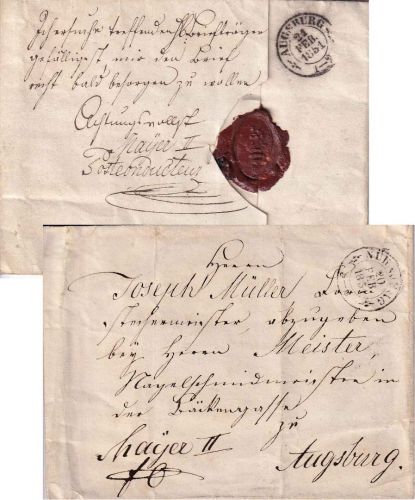 Ich ersuche treffenden H Briefträger
gefälligst mir den Brief
recht bald besorgen zu wollen
Achtungsvollst
Mayer II
Postconducteur
AUGSBURG
21
FEB.
1851
Herrn
Joseph Müller
stechermeister, abzugeben
bey Herrn Meister,
Nagelschmidmeister in
der Bäckengasse
zu
Mayer II
Augsburg.
NÜRNBERG
20
FEB.